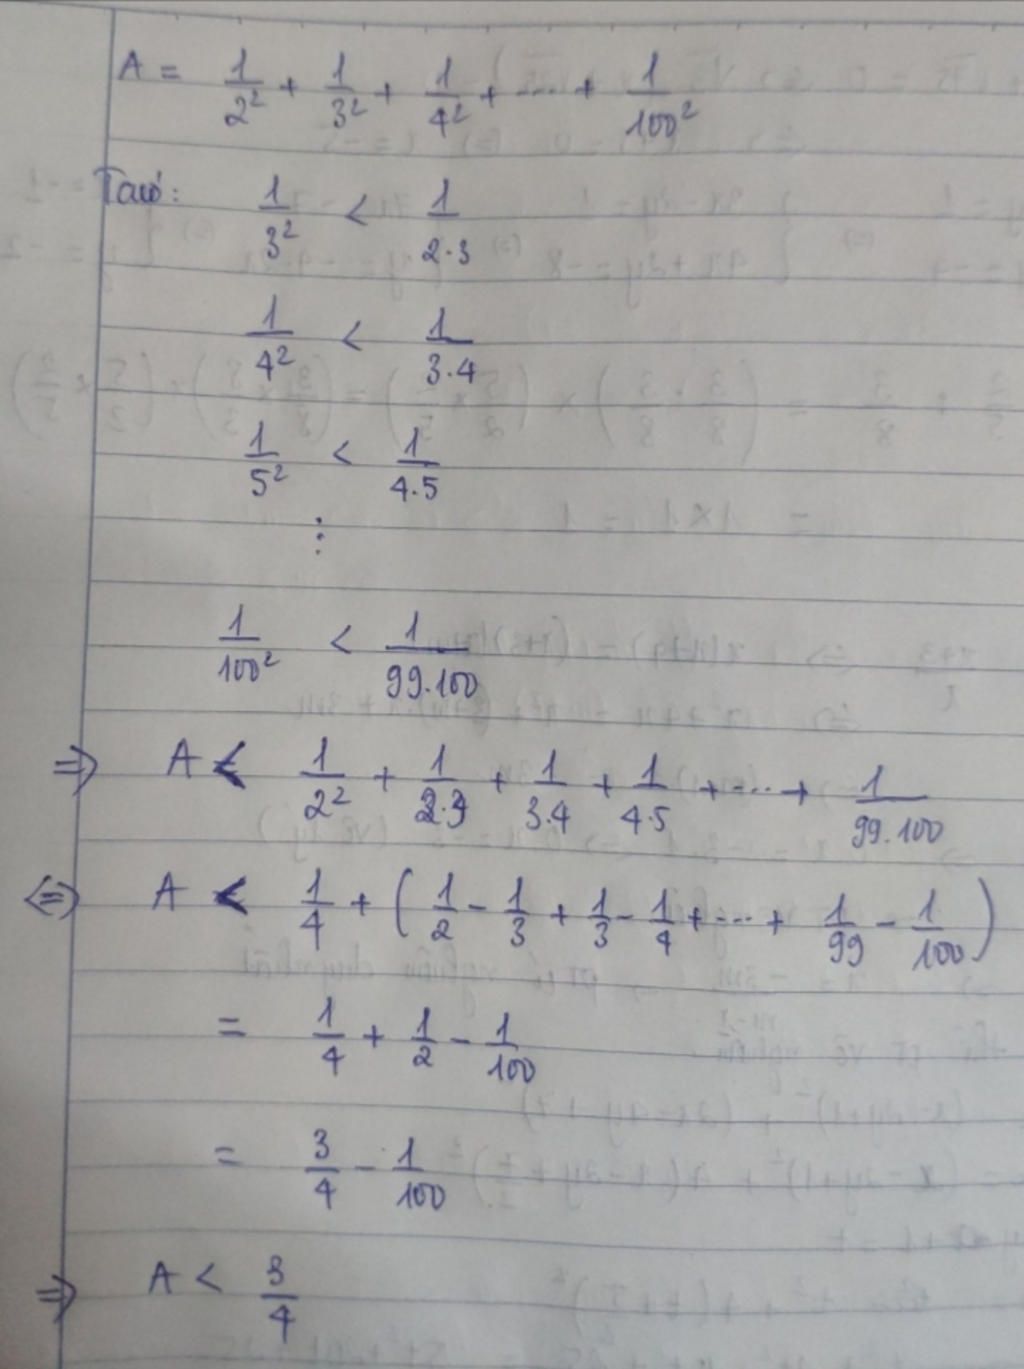 A = 1/2² + 1/3² + 1/4² + ... + 1/100²
Ta có: 1/3² < 1/2.3
1/4² < 1/3.4
1/5² < 1/4.5
⋮
1/100² < 1/99.100
=> A < 1/2² + 1/2.3 + 1/3.4 + 1/4.5 + ... + 1/99.100
<=> A < 1/4 + (1/2 - 1/3 + 1/3 - 1/4 + ... + 1/99 - 1/100)
= 1/4 + 1/2 - 1/100
= 3/4 - 1/100
=> A < 3/4